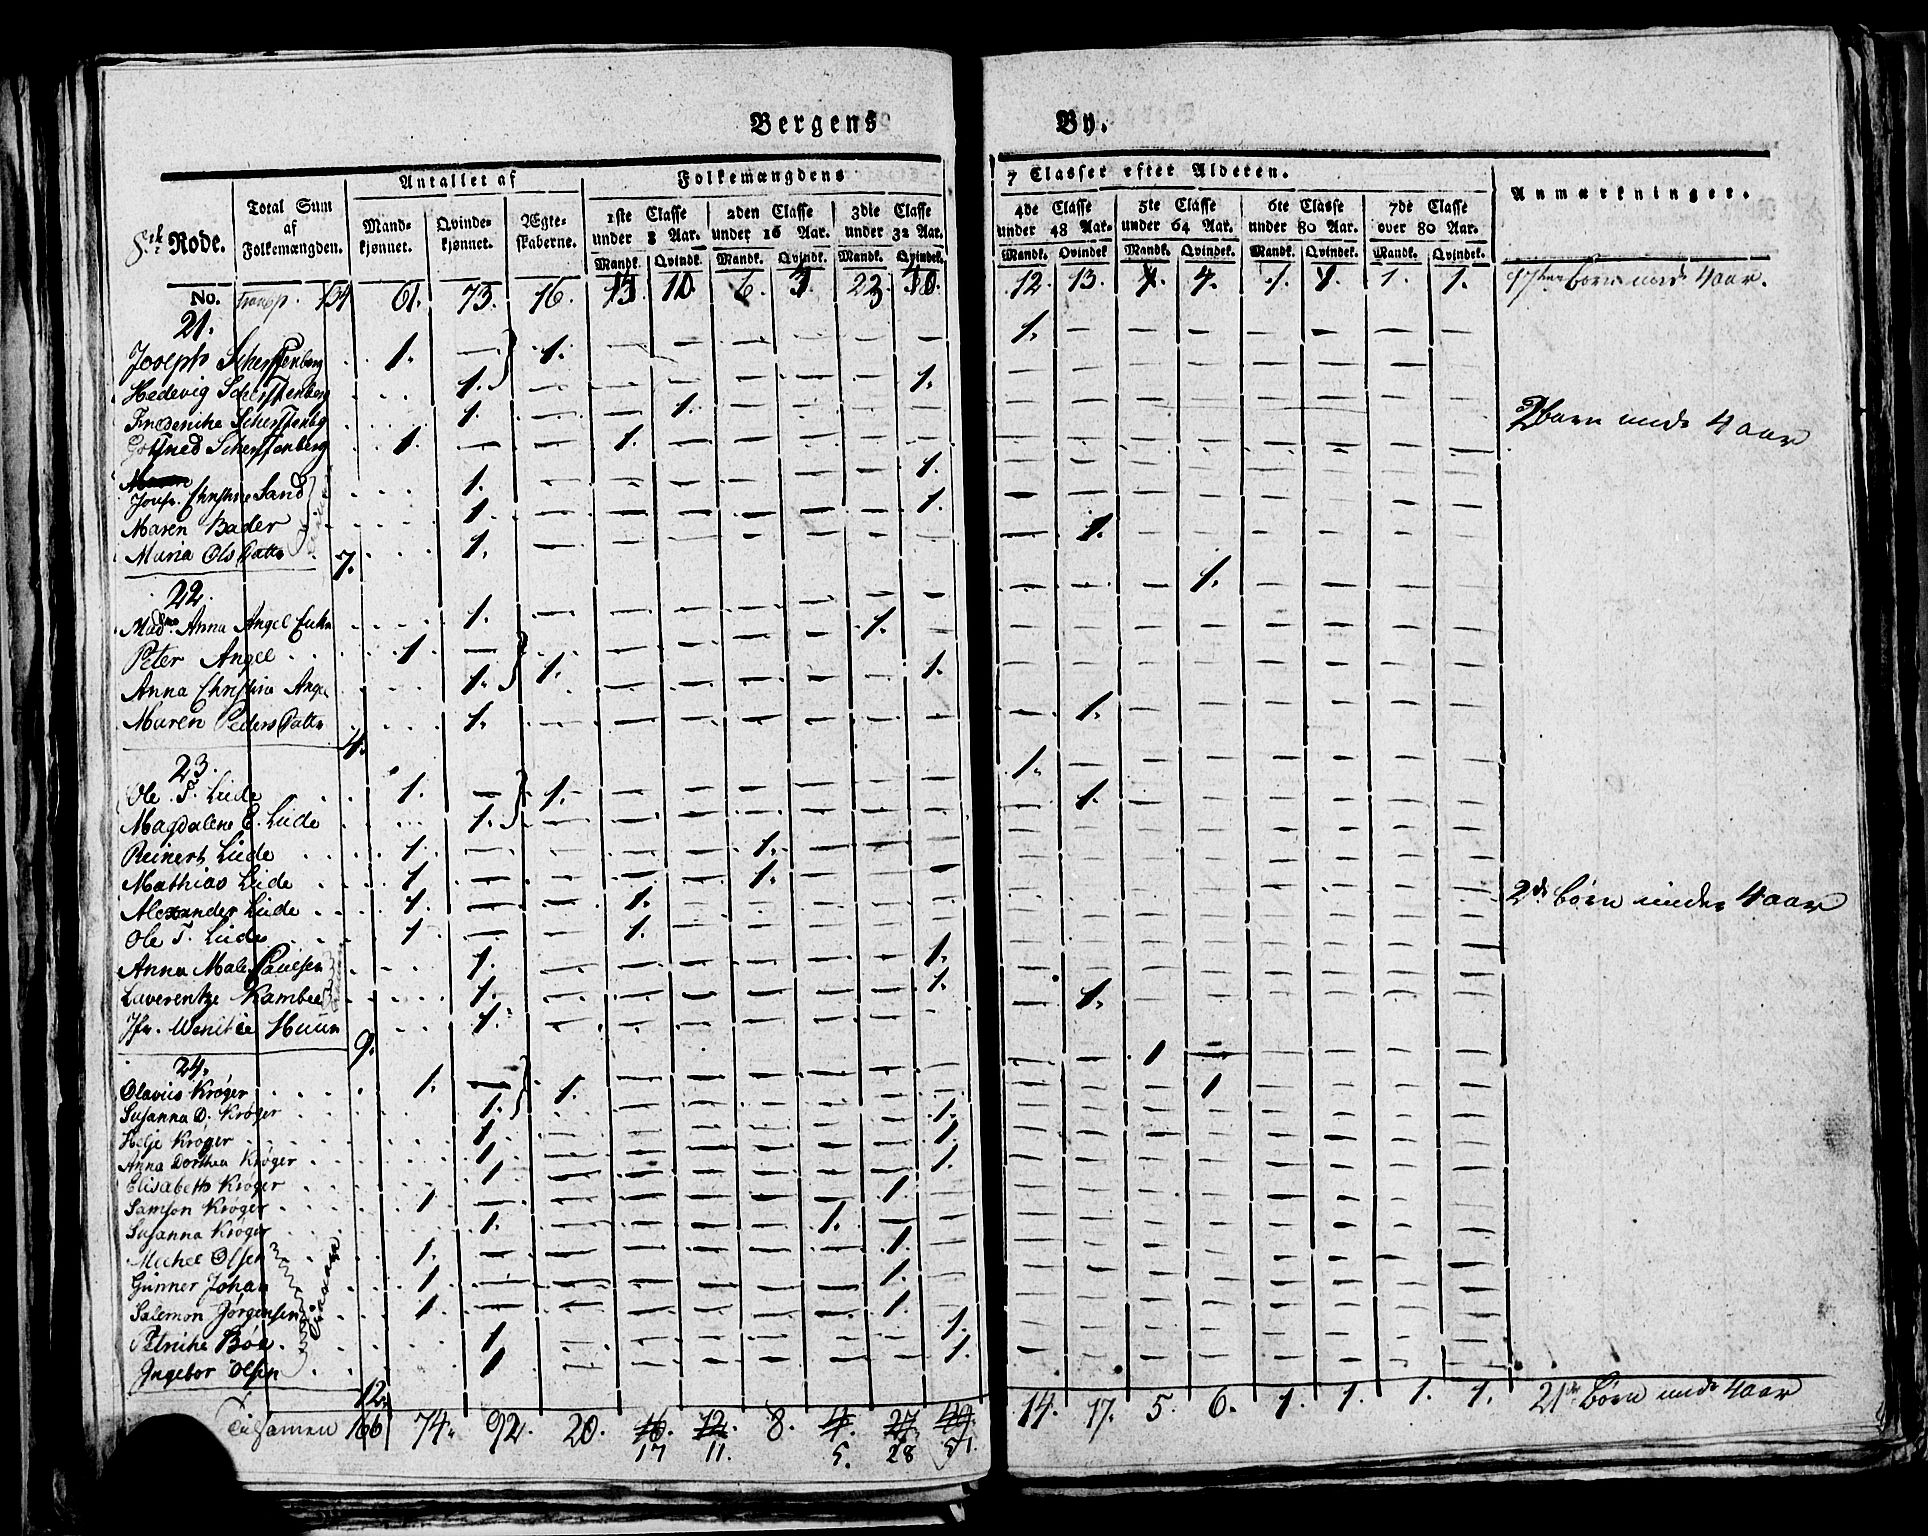 Bergens By.
6te Rode.
Total Sum af Folkemængden.
Antallet af
Mandkjønnet.
Qvindekjønnet.
Ægteskaberne.
Folkemængdens 7 Classer efter Alderen.
1ste Classe under 8 Aar.
2den Classe under 16 Aar.
3die Classe under 32 Aar.
4de Classe under 48 Aar.
5te Classe under 64 Aar.
6te Classe under 80 Aar.
7de Classe over 80 Aar.
Mandk. Qvindk. Mandk. Qvindk. Mandk. Qvindek. Mandk. Qvindek Mandk. Qvindek. Mandk. Qvindek. Mandk. Qvindek.
Anmærkninger.
No. transp. 134 61. 73. 16. 10 6. 12. 13. 4. 4. 1. 1. 1. 1. 17 Børn under 4 aar.
21.
Joseph Scherffenberg 1. 1. 1.
Hedevig Scherffenberg 1. 1.
Frederiche Scherffenbg 1. 1.
Gotfried Scherffenberg 1. 1. 2 børn under 4 aar
Jomfr. Christine Sand 1. 1.
Maren Bader 1. 1.
Maria Ols Datter 1. 1.
7.
22.
Madme. Anna Angel 1. 1.
Peter Angel 1. 1. 1.
Anna Christina Angel 1. 1.
Maren Peders Datter 1. 1.
4.
23.
Ole T. Lude 1. 1. 1.
Magdalene E. Lude 1. 1.
Reinert Lude 1. 1.
Mathias Lude 1. 1.
Alexander Lude 1. 1. 2de børn under 4 aar
Ole T. Lude 1. 1.
Anna Male Paulsen 1. 1.
Laverentze Kambee 1. 1.
Jfr. 1. 1.
9.
24.
Olavius Krøger 1. 1. 1
Susanna D. Krøger 1. 1
Helje Krøger 1. 1.
Anna Dorthea Krøger 1. 1.
Elisabeth Krøger 1. 1.
Samson Krøger 1. 1.
Susanna Krøger 1. 1.
Michel Olsen 1. 1.
Gunner Johan 1. 1.
Salemon Jørgensen 1. 1.
Petriche Boe 1. 1.
Ingebor Olsen 1. 1.
12.
Tilsamen 166 74. 92. 20. 16. 12. 8. 4. 27. 14. 17. 5. 6. 1. 1. 1. 1. 21 Børn under 4 aar
17 11. 5. 28 51.